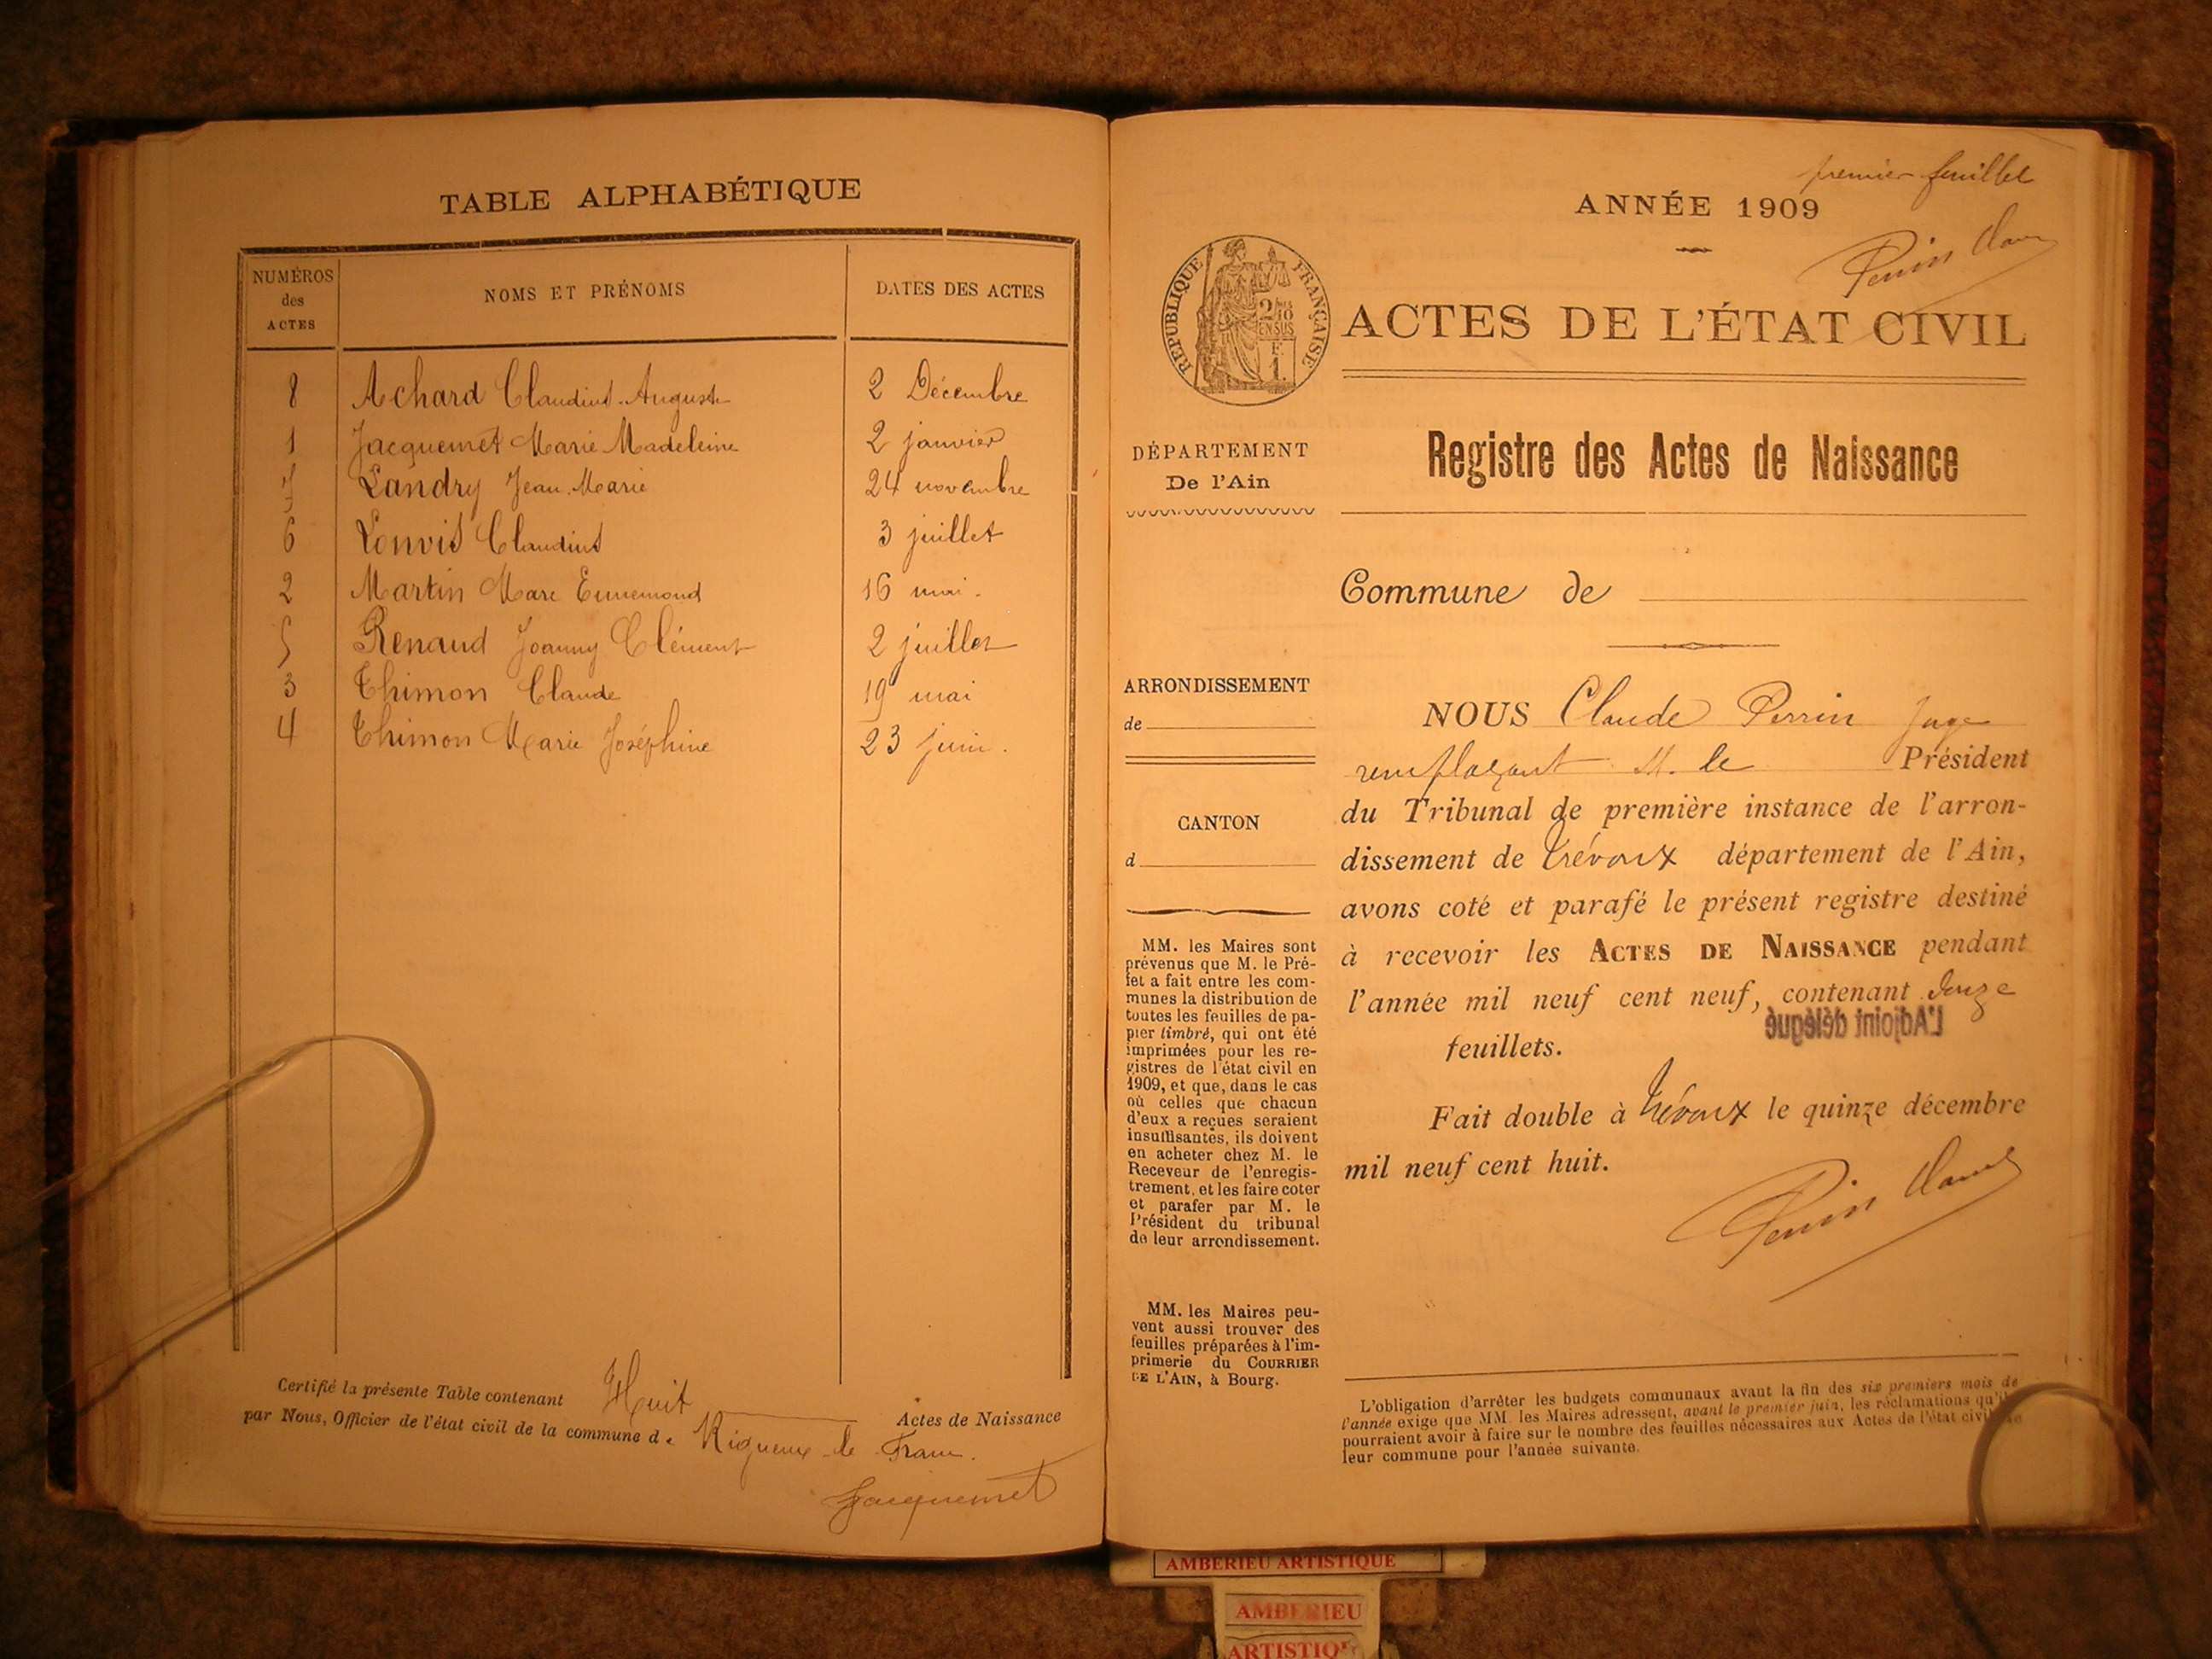 TABLE ALPHABÉTIQUE
NUMÉROS des ACTES
NOMS ET PRÉNOMS
DATES DES ACTES
8 Achard Claudius-Auguste 2 Décembre
1 Jacquemet Marie Madeleine 2 janvier
7 Landry Jean-Marie 24 novembre
6 Louvis Claudius 3 juillet
2 Martin Marc Ennemond 16 mai
5 Renaud Joanny Clément 2 juillet
3 Thimon Claude 19 mai
4 Thimon Marie Joséphine 23 juin.
Certifié la présente Table contenant Huit Actes de Naissance
par Nous, Officier de l'état civil de la commune de Rigneux le Franc.
Jacquemet
premier feuillet
ANNÉE 1909
Perrin Claude
RÉPUBLIQUE FRANÇAISE
2/10 EN SUS
F. 1.
ACTES DE L'ÉTAT CIVIL
DÉPARTEMENT
De l'Ain
Registre des Actes de Naissance
Commune de
ARRONDISSEMENT
de
CANTON
d
MM. les Maires sont
prévenus que M. le Pré-
fet a fait entre les com-
munes la distribution de
toutes les feuilles de pa-
pier timbré, qui ont été
imprimées pour les re-
gistres de l'état civil en
1909, et que, dans le cas
où celles que chacun
d'eux a reçues seraient
insuffisantes, ils doivent
en acheter chez M. le
Receveur de l'enregis-
trement, et les faire coter
et parafer par M. le
Président du tribunal
de leur arrondissement.
MM. les Maires peu-
vent aussi trouver des
feuilles préparées à l'im-
primerie du COURRIER
DE L'AIN, à Bourg.
NOUS Claude Perrin Juge
remplaçant M. le Président
du Tribunal de première instance de l'arron-
dissement de Trévoux département de l'Ain,
avons coté et parafé le présent registre destiné
à recevoir les ACTES DE NAISSANCE pendant
l'année mil neuf cent neuf, contenant douze
L'Adjoint délégué
feuillets.
Fait double à Trévoux le quinze décembre
mil neuf cent huit.
Perrin Claude
L'obligation d'arrêter les budgets communaux avant la fin des six premiers mois de
l'année exige que MM. les Maires adressent, avant le premier juin, les réclamations qu'ils
pourraient avoir à faire sur le nombre des feuilles nécessaires aux Actes de l'état civil de
leur commune pour l'année suivante.
AMBERIEU ARTISTIQUE
AMBERIEU
ARTISTIQ